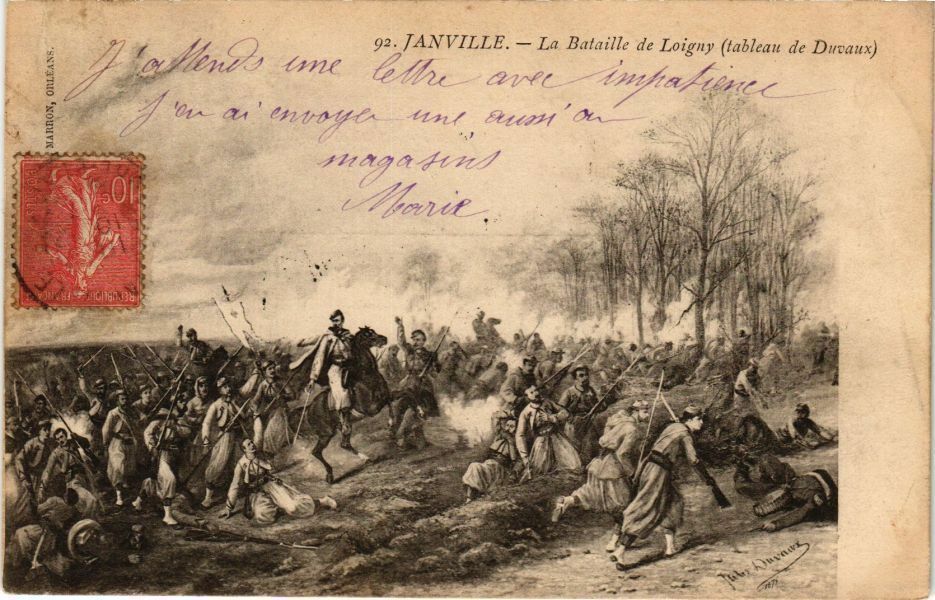 92. JANVILLE. — La Bataille de Loigny (tableau de Duvaux)
J'attends une lettre avec impatience
j'en ai envoyer une aussi au
magasins
Marie
MARRON, ORLÉANS.
10c
REPUBLIQUE FRANÇAISE
Jules Duvaux